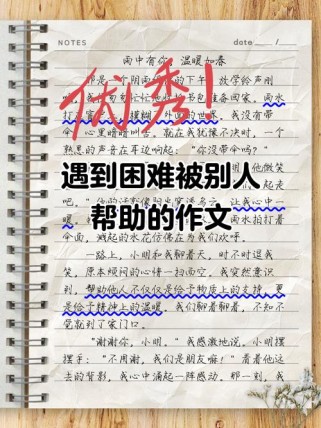 NOTES
date:
雨中有你,温暖如春
优秀!
那是一个阴雨的下午,放学铃声刚
书包准备回家。雨水
打外面的世界。我没有带
伞,心里暗暗叫苦。就在我犹豫不决时,一个
熟悉的声音在耳边响起:“你没带伞吗?”
他微笑
遇到困难被别人
帮助的作文
一起走
让我心中一
暖。雨水拍打着
伞面,溅起的水花仿佛在为我们欢呼。
一路上,小明和我聊着天,时不时逗我
笑,原本烦闷的心情一扫而空。我突然意识
到,帮助他人不仅仅是给予物质上的支持,更
是给予精神上的温暖。我们聊着聊着,不知不
觉就到了家门口。
“谢谢你,小明。”我感激地说。小明摆
摆手:“不用谢,我们是朋友嘛!”看着他远
去的背影,我心中涌起一阵感动。那一刻,我